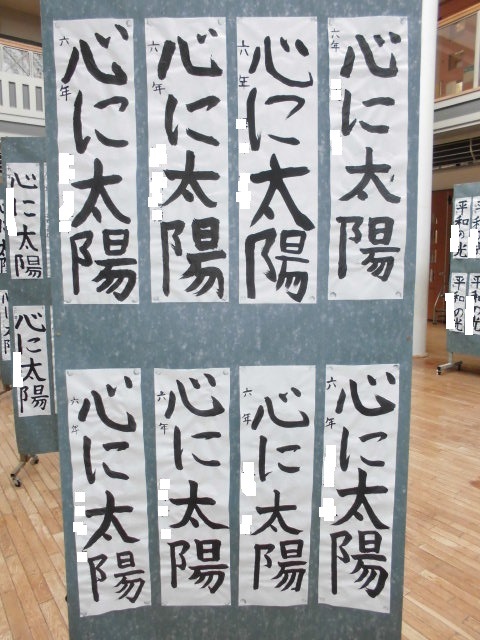 心に太陽
六年
心に太陽
六年
心に太陽
六年
心に太陽
六年
心に太陽
六年
心に太陽
六年
心に太陽
六年
心に太陽
六年
心に太陽
心に太陽
平和の光
平和の光
平和の光
平和の光